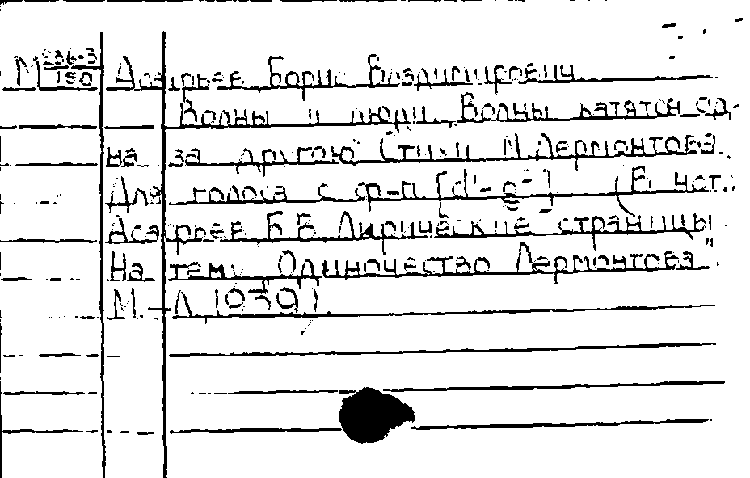 М 236-3/150 Асафьев Борис Владимирович
Волны и люди. "Волны катятся од-
на за другою" Стихи М. Лермонтова.
Для голоса с ф-п. [d¹- g²] (В нот.:
Асафьев Б.В. Лирические страницы
На тему "Одиночество Лермонтова".
М.-Л., 1939).